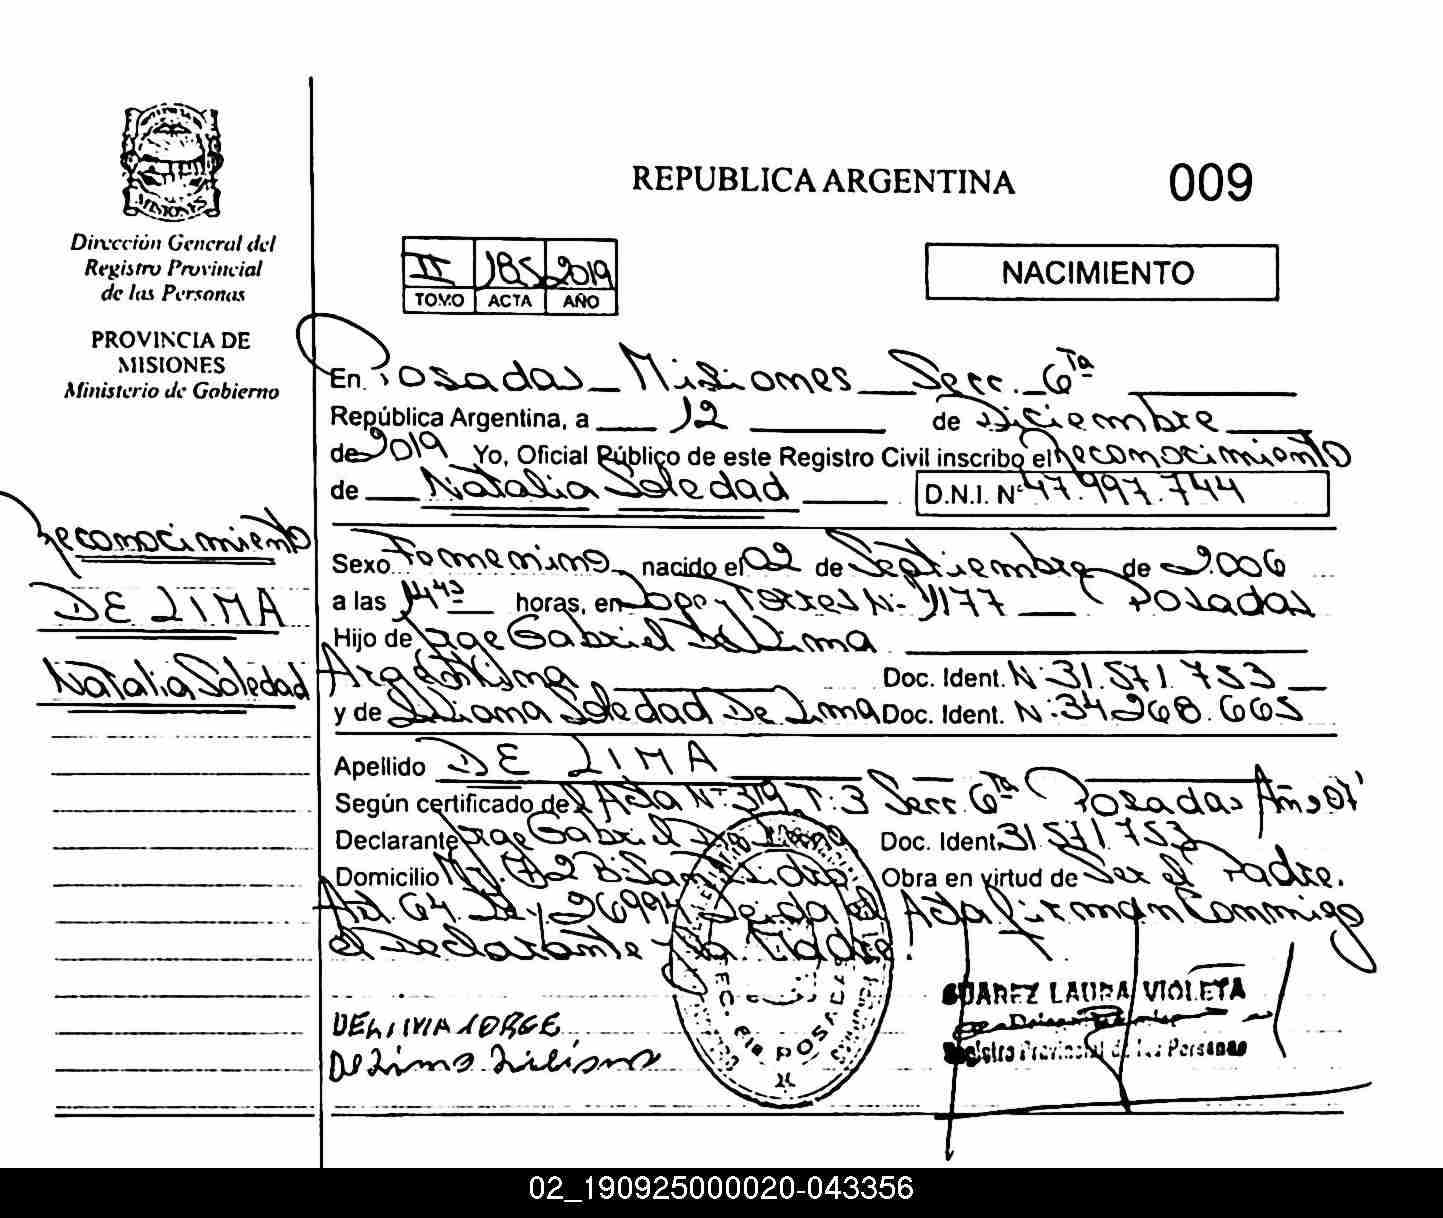 REPUBLICA ARGENTINA
009
MISIONES
Dirección General del
Registro Provincial
de las Personas
PROVINCIA DE
MISIONES
Ministerio de Gobierno
II 185 2019
TOMO ACTA AÑO
NACIMIENTO
En Posadas Misiones Secc. 6ta
República Argentina, a 12 de Diciembre
de 2019 Yo, Oficial Público de este Registro Civil inscribo el Reconocimiento
de Natalia Soledad D.N.I. Nº 47.997.744
Reconocimiento
DE LIMA
Natalia Soledad
Sexo Femenino nacido el 02 de Septiembre de 2.006
a las horas, en Lopez Torres Nº 1177 Posadas
Hijo de Jorge Gabriel De Lima
Argentina Doc. Ident. Nº 31.571.753
y de Liliana Soledad De Lima Doc. Ident. Nº 34.268.665
Apellido DE LIMA
Según certificado de Acta Nº 319 T: 3 Secc 6ta Posadas Año 07
Declarante Jorge Gabriel Doc. Ident. 31.571.753
Domicilio San Pedro Obra en virtud de Ser el Padre.
Art. 64 Ley 26994 Leida el Acta firman Conmigo
el Declarante y la Madre.
DE LIMA JORGE
De Lima Liliana
SEC. 6ta POSADAS
SUAREZ LAURA VIOLETA
Registro Provincial de las Personas
02_190925000020-043356